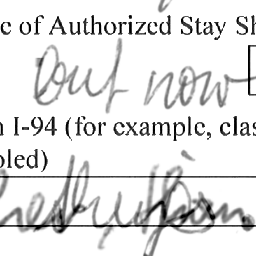 e of Authorized Stay Sh
Out now
n I-94 (for example, clas
oled)